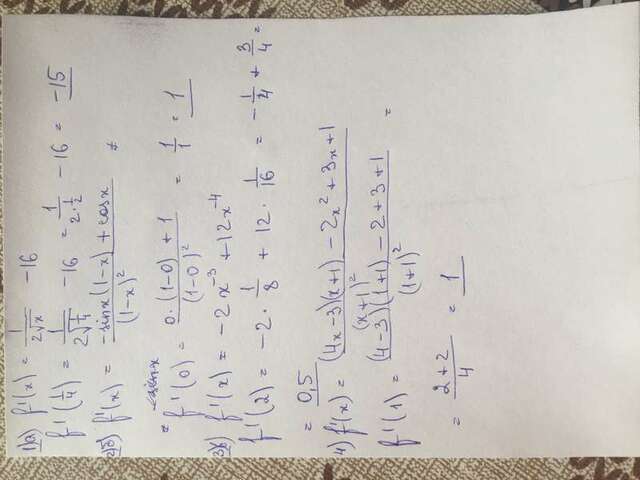 1) а) f'(x) = 1/(2√x) - 16
f'(1/4) = 1/(2√(1/4)) - 16 = 1/(2·1/2) - 16 = -15
б) f'(x) = (-sinx(1-x) + cosx)/(1-x)² =
= f'(0) = (0·(1-0)+1)/(1-0)² = 1/1 = 1
f'(x) = -2x⁻³ + 12x⁻⁴
f'(2) = -2·1/8 + 12·1/16 = -1/4 + 3/4 =
= 0,5
4) f'(x) = ((4x-3)(x+1) - 2x² + 3x + 1)/(x+1)²
f'(1) = ((4-3)(1+1) - 2 + 3 + 1)/(1+1)² =
= (2+2)/4 = 1